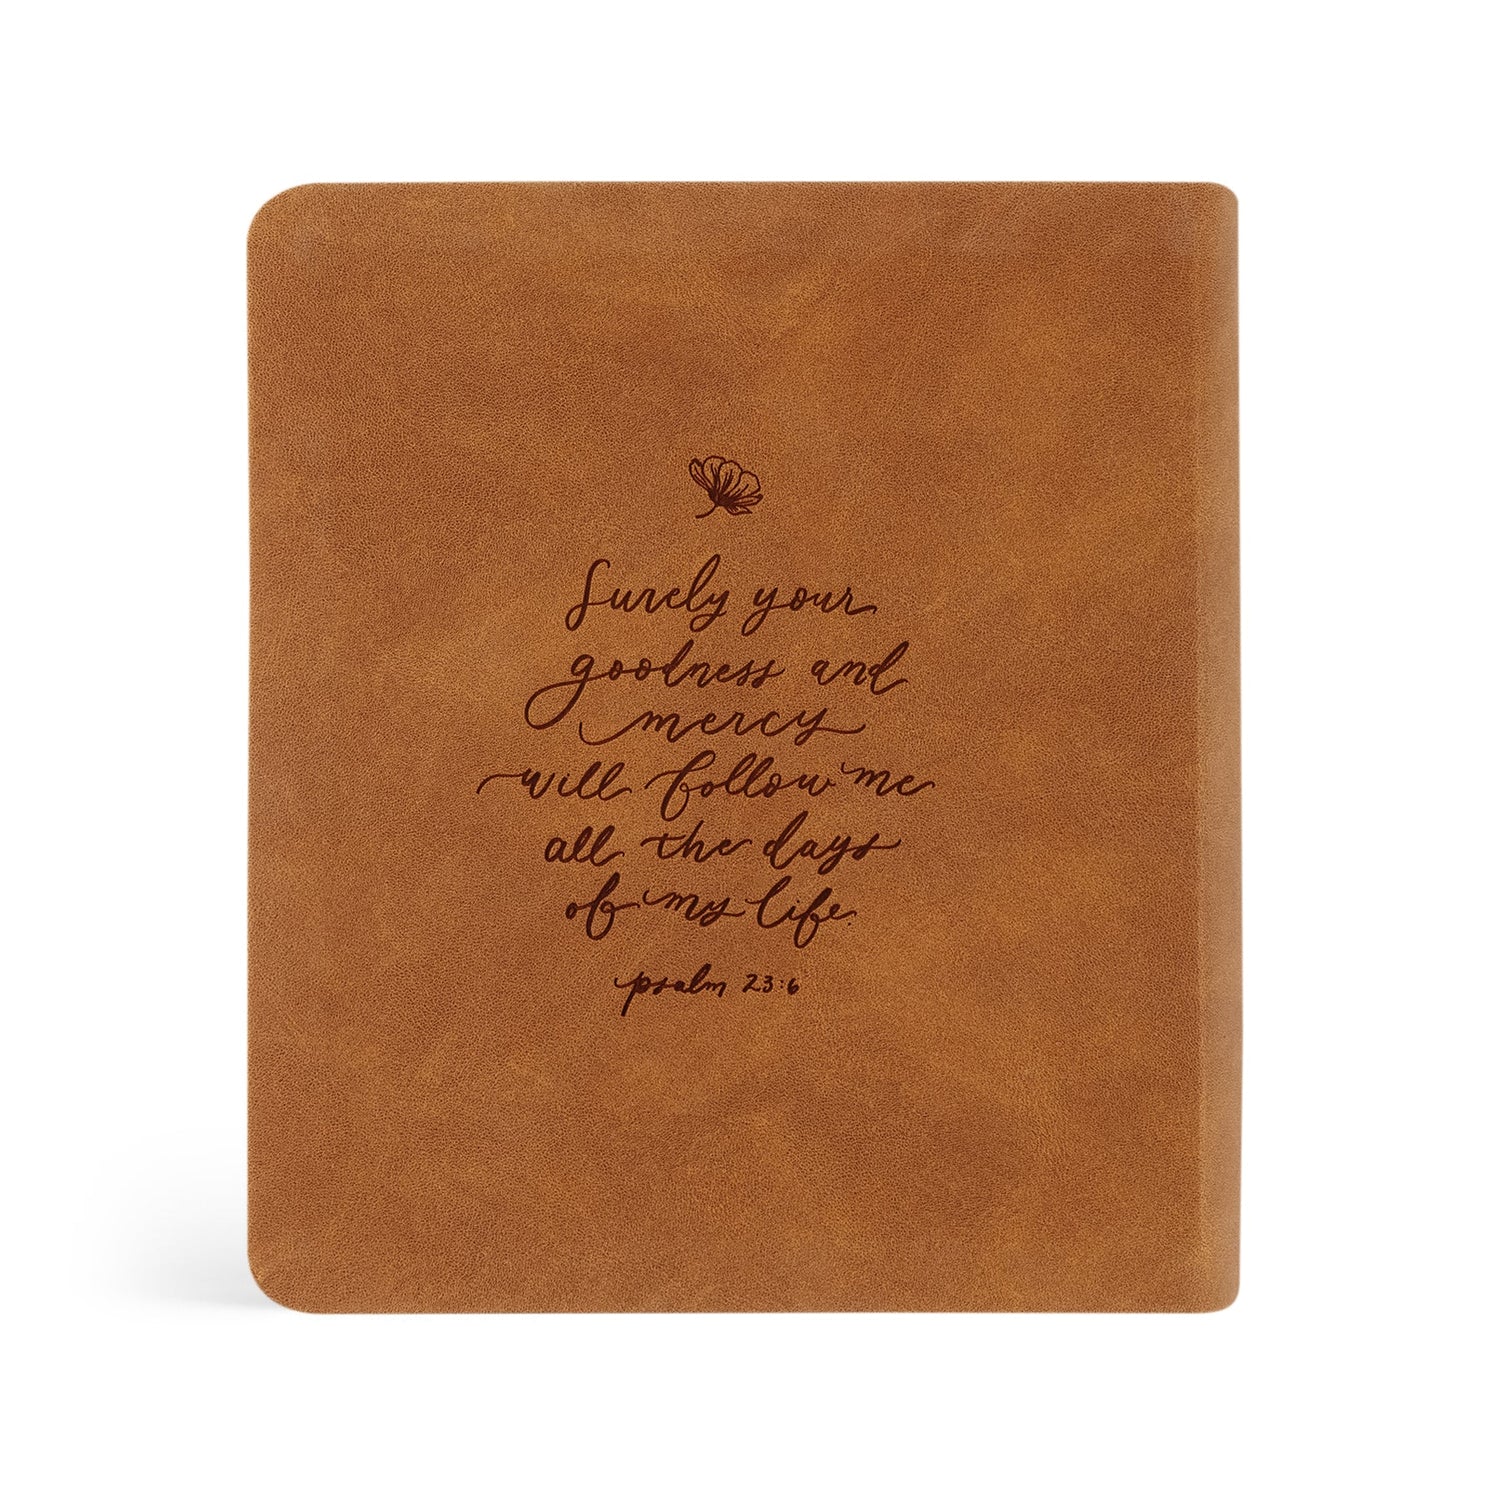 Surely your
goodness and
mercy
will follow me
all the days
of my life.
psalm 23:6